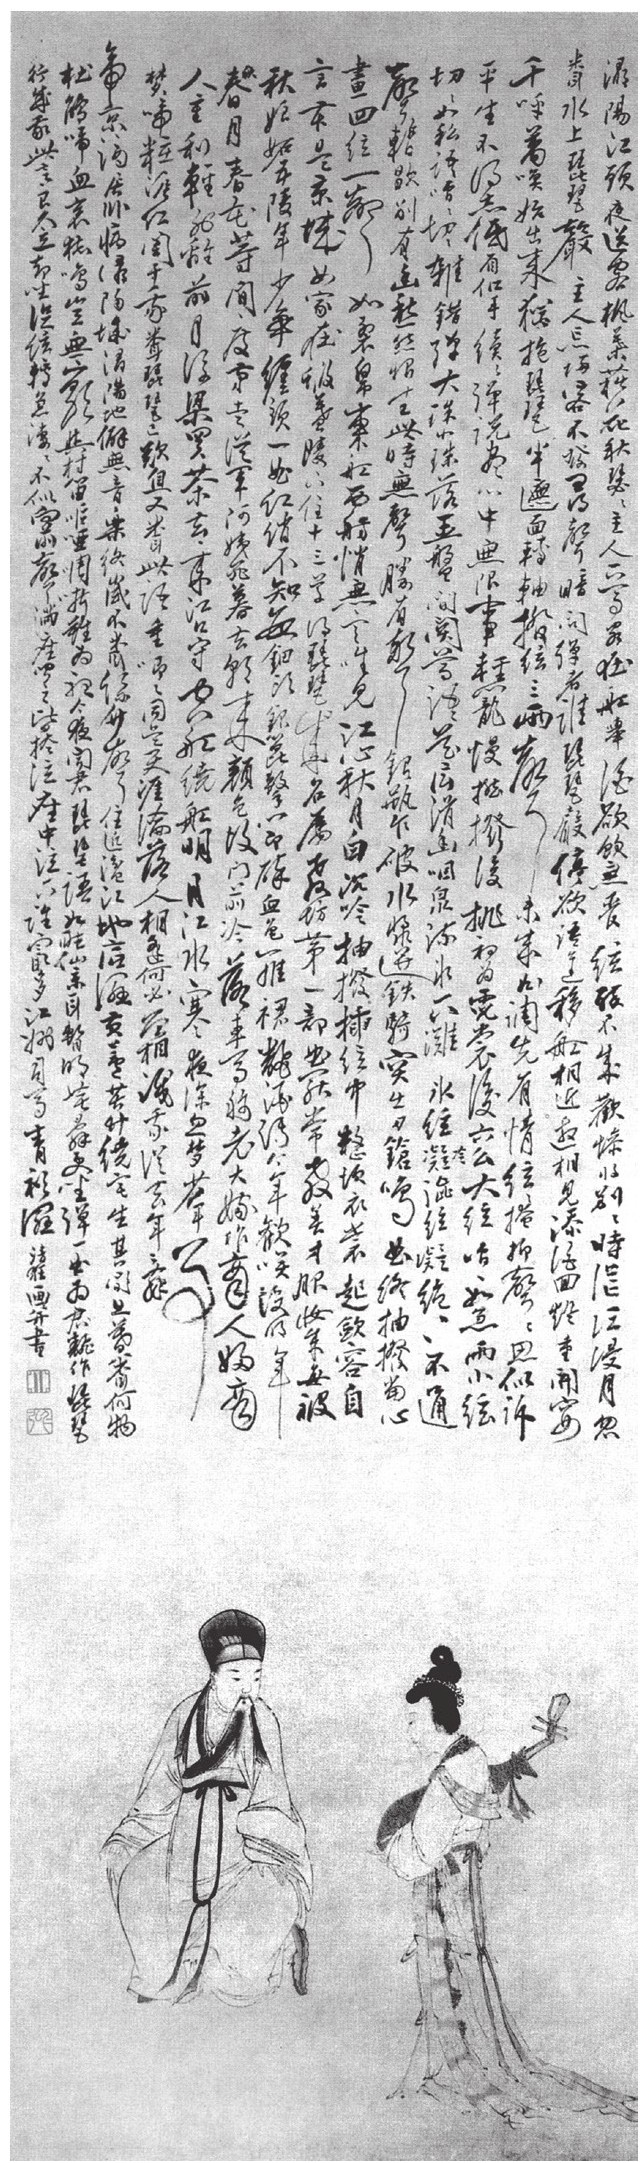 潯陽江頭夜送客楓葉荻花秋瑟瑟主人下馬客在船舉酒欲飲無管絃醉不成歡慘將別別時茫茫江浸月忽
聞水上琵琶聲主人忘歸客不發尋聲暗問彈者誰琵琶聲停欲語遲移船相近邀相見添酒回燈重開宴
千呼萬喚始出來猶抱琵琶半遮面轉軸撥絃三兩聲未成曲調先有情絃絃掩抑聲聲思似訴
平生不得志低眉信手續續彈說盡心中無限事輕攏慢撚撥復挑初為霓裳後六么大絃嘈嘈如急雨小絃
切切如私語嘈嘈切切雜錯彈大珠小珠落玉盤間關鶯語花底滑幽咽泉流水下灘水絃冷澀絃凝絕凝絕不通
聲暫歇別有幽愁暗恨生此時無聲勝有聲銀瓶乍破水漿迸鐵騎突出刀鎗鳴曲終抽撥當心
畫四絃一聲如裂帛東船西舫悄無言唯見江心秋月白沉吟抽撥插絃中整頓衣裳起斂容自
言本是京城女家在蝦蟇陵下住十三學得琵琶成名屬教坊第一部曲罷常教善才服妝成每被
秋娘妬五陵年少爭纏頭一曲紅綃不知數鈿頭銀篦擊節碎血色羅裙翻酒污今年歡笑復明年
春月春花等閒度弟走從軍阿姨死暮去朝來顏色故門前冷落車馬稀老大嫁作商人婦商
人重利輕別離前月浮梁買茶去去來江口守空船繞船明月江水寒夜深忽夢少年事
夢啼粧淚紅闌干我聞琵琶已歎息又聞此語重唧唧同是天涯淪落人相逢何必曾相識我從去年辭
帝京謫居臥病潯陽城潯陽地僻無音樂終歲不聞絲竹聲住近湓江地底濕黃蘆苦竹繞宅生其間旦暮聞何物
杜鵑啼血哀猿鳴豈無山歌與村笛嘔啞嘲哳難為聽今夜聞君琵琶語如聽仙樂耳暫明莫辭更坐彈一曲為君翻作琵琶
行感我此言良久立却坐促絃絃轉急淒淒不似向前聲滿座聞之皆掩泣座中泣下誰最多江州司馬青衫濕 清狂畫并書